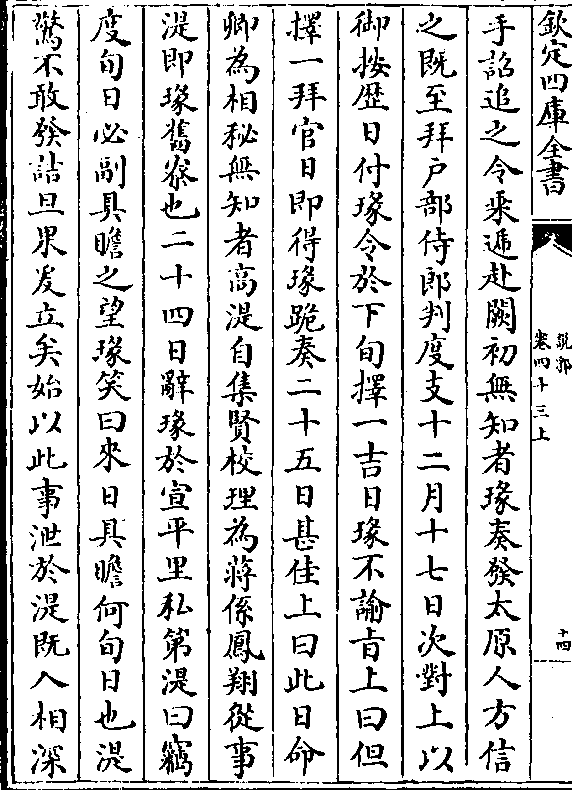 欽定四庫全書
說郛
卷四十三上
十四
手詔追之令乘遞赴闕初無知者瑑奏發太原人方信
之既至拜户部侍郎判度支十二月十七日次對上以
御按歴日付瑑令於下旬擇一吉日瑑不諭㫖上曰但
擇一拜官日即得瑑跪奏二十五日甚佳上曰此日命
卿為相秘無知者高湜自集賢校理為蔣係鳳翔從事
湜即瑑舊寮也二十四日辭瑑於宣平里私第湜曰竊
度旬日必副具瞻之望瑑笑曰來日具瞻何旬日也湜
驚不敢發詰旦果爰立矣始以此事泄於湜既入相深